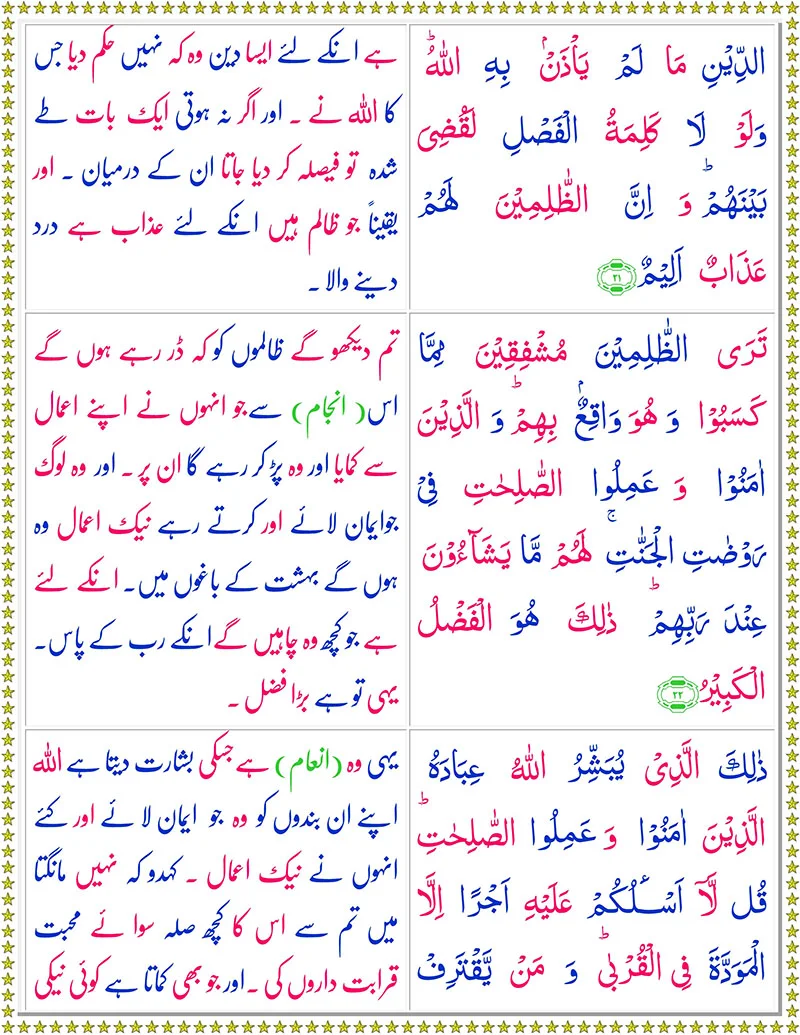 الدِّیْنِ مَا لَمْ یَاْذَنْۢ بِهِ اللّٰهُؕ
وَلَوْ لَا كَلِمَةُ الْفَصْلِ لَقُضِیَ
بَیْنَهُمْؕ وَ اِنَّ الظّٰلِمِیْنَ لَهُمْ
عَذَابٌ اَلِیْمٌ ۲۱
ہے انکے لئے ایسا دین وہ کہ نہیں حکم دیا جس
کا اللہ نے ۔ اور اگر نہ ہوتی ایک بات طے
شدہ تو فیصلہ کر دیا جاتا ان کے درمیان ۔ اور
یقیناً جو ظالم ہیں انکے لئے عذاب ہے درد
دینے والا ۔
تَرَی الظّٰلِمِیْنَ مُشْفِقِیْنَ مِمَّا
كَسَبُوْا وَ هُوَ وَاقِعٌۢ بِهِمْؕ وَ الَّذِیْنَ
اٰمَنُوْا وَ عَمِلُوا الصّٰلِحٰتِ فِیْ
رَوْضٰتِ الْجَنّٰتِۚ لَهُمْ مَّا یَشَآءُوْنَ
عِنْدَ رَبِّهِمْؕ ذٰلِكَ هُوَ الْفَضْلُ
الْكَبِیْرُ ۲۲
تم دیکھو گے ظالموں کو کہ ڈر رہے ہوں گے
اس (انجام) سے جو انہوں نے اپنے اعمال
سے کمایا اور وہ پڑ کر رہے گا ان پر ۔ اور وہ لوگ
جو ایمان لائے اور کرتے رہے نیک اعمال وہ
ہوں گے بہشت کے باغوں میں۔ انکے لئے
ہے جو کچھ وہ چاہیں گے انکے رب کے پاس۔
یہی تو ہے بڑا فضل ۔
ذٰلِكَ الَّذِیْ یُبَشِّرُ اللّٰهُ عِبَادَهُ
الَّذِیْنَ اٰمَنُوْا وَ عَمِلُوا الصّٰلِحٰتِؕ
قُل لَّاۤ اَسْـَٔلُكُمْ عَلَیْهِ اَجْرًا اِلَّا
الْمَوَدَّةَ فِی الْقُرْبٰیؕ وَ مَنْ یَّقْتَرِفْ
یہی وہ (انعام) ہے جسکی بشارت دیتا ہے اللہ
اپنے ان بندوں کو وہ جو ایمان لائے اور کئے
انہوں نے نیک اعمال ۔ کہدو کہ نہیں مانگتا
میں تم سے اس کا کچھ صلہ سوائے محبت
قرابت داروں کی ۔ اور جو بھی کماتا ہے کوئی نیکی